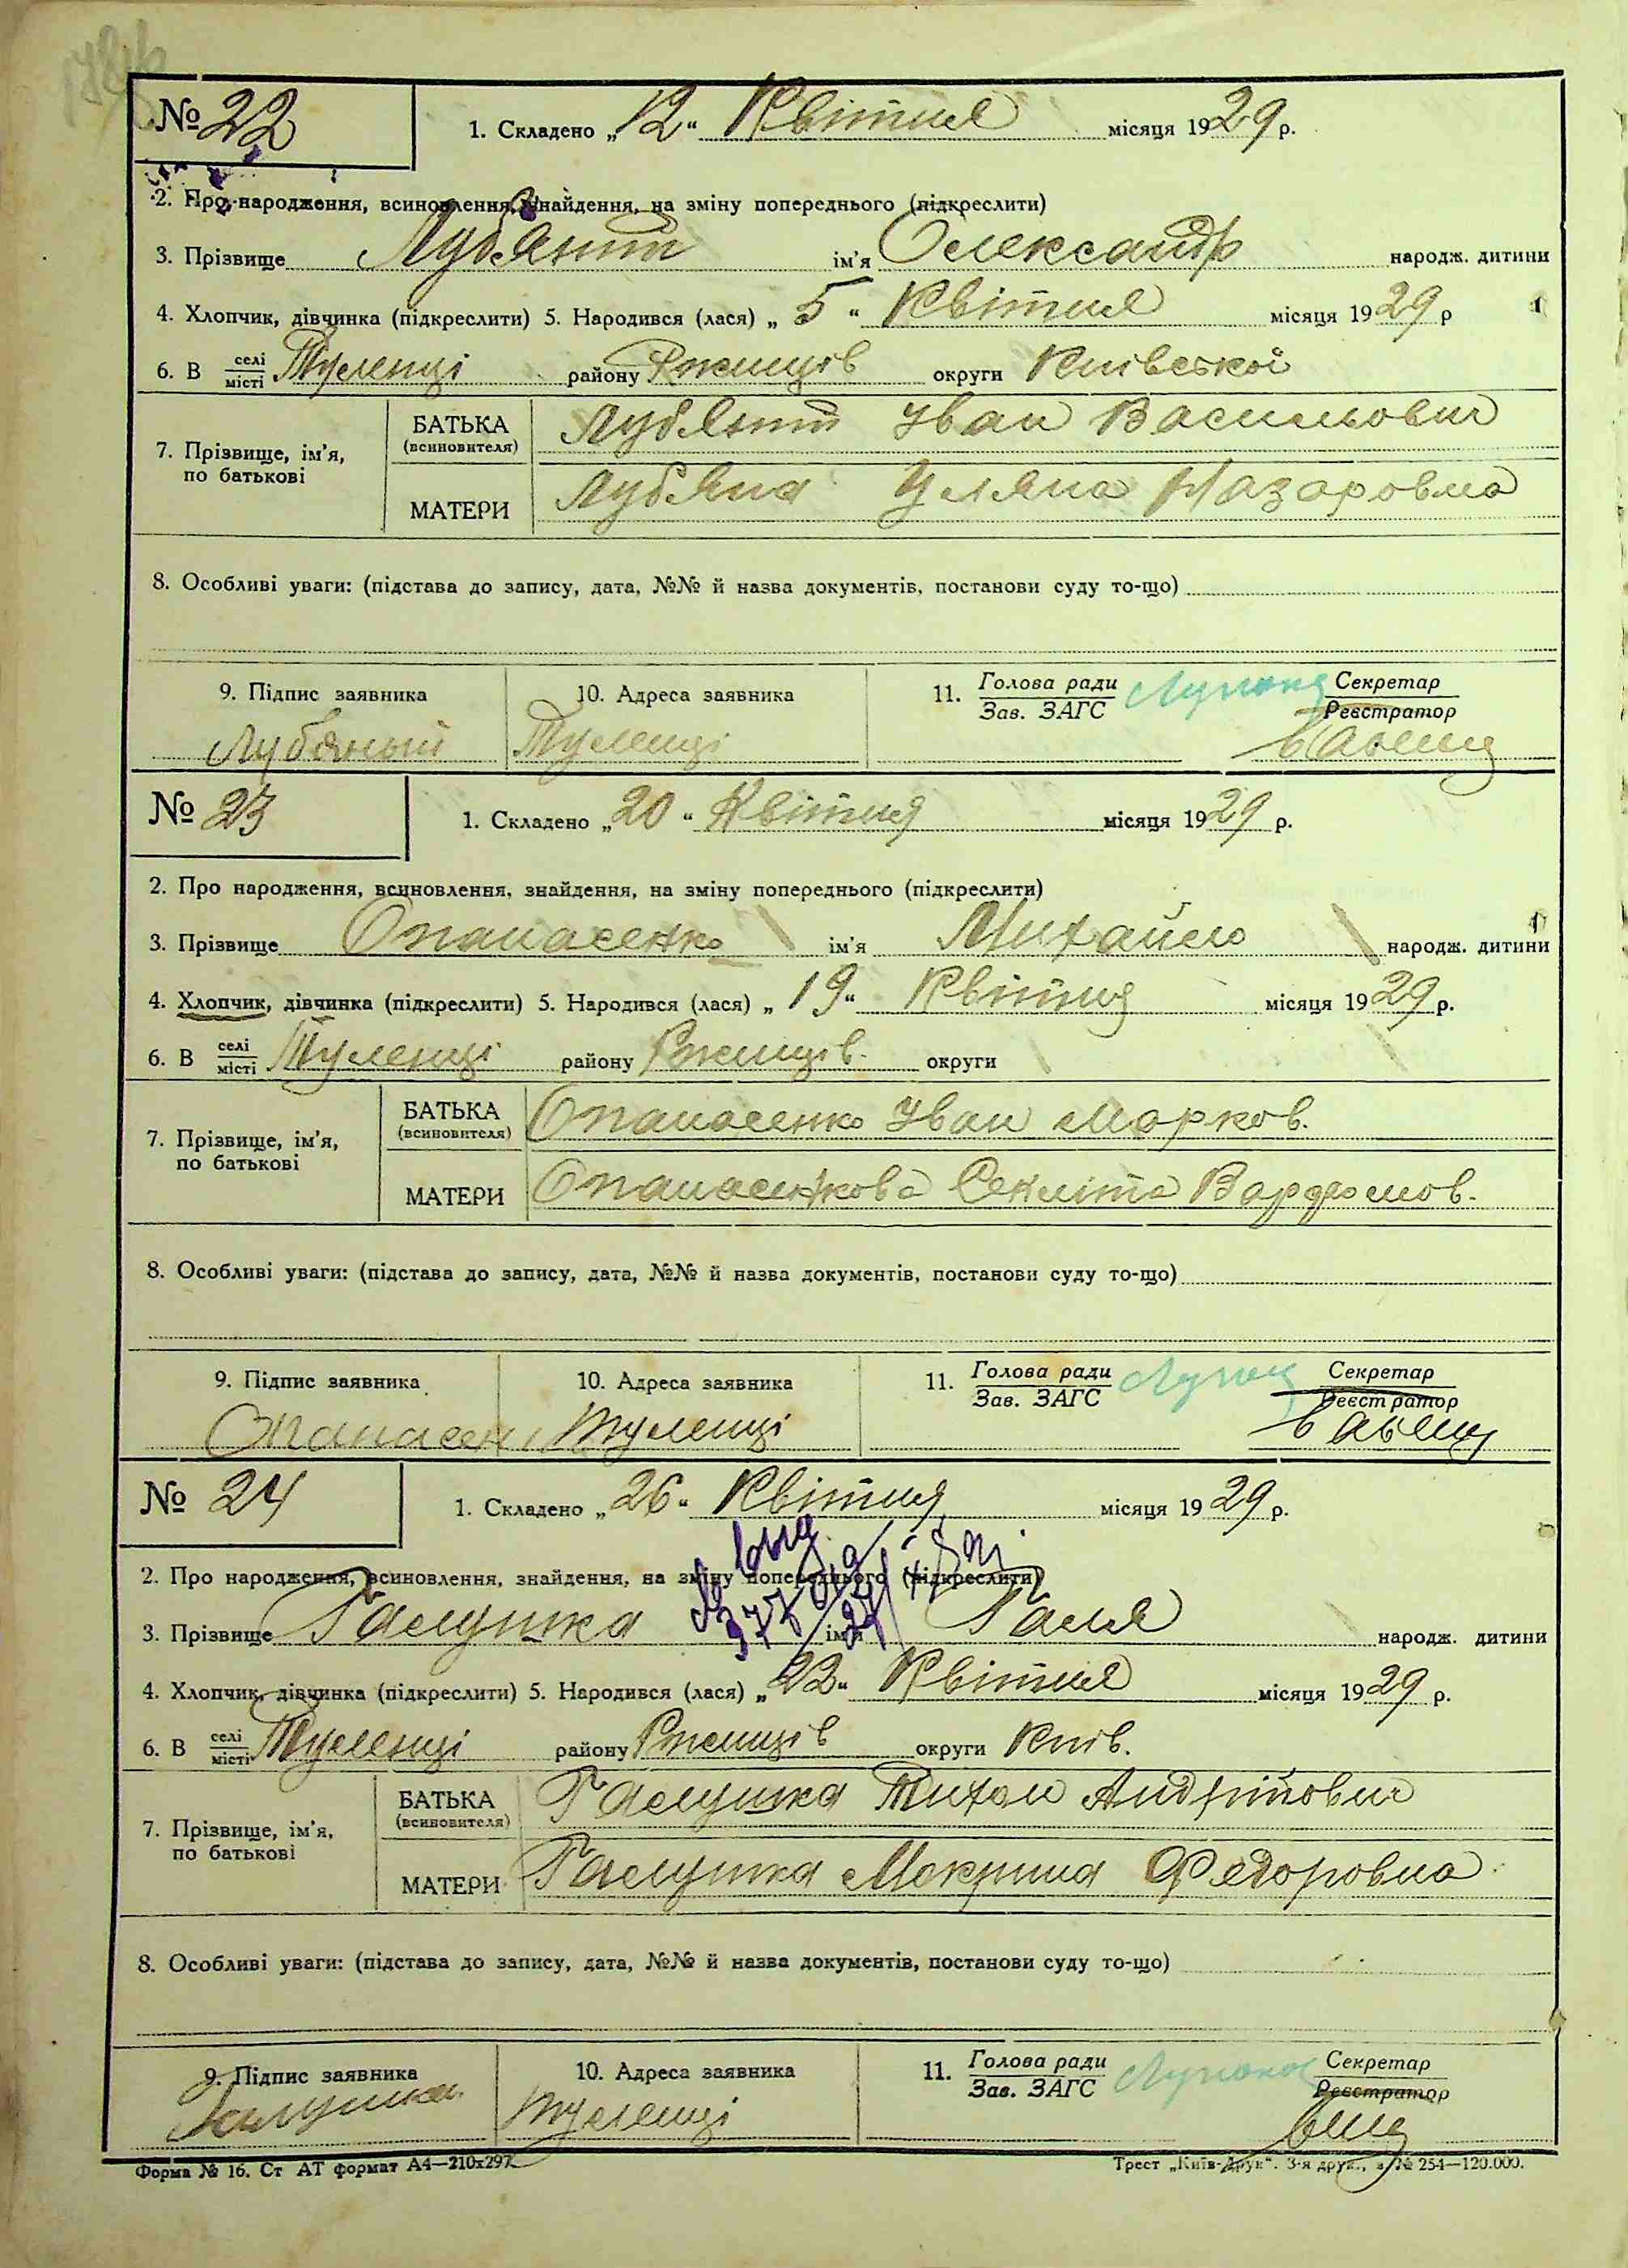 № 22 1. Складено „12“ Квітня місяця 1929 р.
2. Про народження, всиновлення, знайдення, на зміну попереднього (підкреслити)
3. Прізвище Лубяний ім'я Олександр народж. дитини
4. Хлопчик, дівчинка (підкреслити) 5. Народився (лася) „5“ Квітня місяця 1929 р
6. В селі/місті Туленці району Ржищів округи Київської
7. Прізвище, ім'я, по батькові
БАТЬКА (всиновителя) Лубяний Іван Васильович
МАТЕРИ Лубяна Уляна Назаровна
8. Особливі уваги: (підстава до запису, дата, №№ й назва документів, постанови суду то-що)
9. Підпис заявника 10. Адреса заявника 11. Голова ради Секретар
Зав. ЗАГС Реєстратор
Лубяный Туленці
№ 23 1. Складено „20“ Квітня місяця 1929 р.
2. Про народження, всиновлення, знайдення, на зміну попереднього (підкреслити)
3. Прізвище Опанасенко ім'я Михайло народж. дитини
4. Хлопчик, дівчинка (підкреслити) 5. Народився (лася) „19“ Квітня місяця 1929 р.
6. В селі/місті Туленці району Ржищів. округи
7. Прізвище, ім'я, по батькові
БАТЬКА (всиновителя) Опанасенко Іван Марков.
МАТЕРИ Опанасенкова Секліта Варфломов.
8. Особливі уваги: (підстава до запису, дата, №№ й назва документів, постанови суду то-що)
9. Підпис заявника 10. Адреса заявника 11. Голова ради Секретар
Зав. ЗАГС Реєстратор
Опанасен Туленці
№ 24 1. Складено „26“ Квітня місяця 1929 р.
2. Про народження, всиновлення, знайдення, на зміну попереднього (підкреслити)
3. Прізвище Галушка ім'я Галя народж. дитини
4. Хлопчик, дівчинка (підкреслити) 5. Народився (лася) „22“ Квітня місяця 1929 р.
6. В селі/місті Туленці району Ржищів округи Київ.
7. Прізвище, ім'я, по батькові
БАТЬКА (всиновителя) Галушка Тихон Андрійович
МАТЕРИ Галушка Мокрина Федоровна
8. Особливі уваги: (підстава до запису, дата, №№ й назва документів, постанови суду то-що)
9. Підпис заявника 10. Адреса заявника 11. Голова ради Секретар
Зав. ЗАГС Реєстратор
Галушка Туленці
Форма № 16. Ст АТ формат А4—210х297. Трест „Київ-Друк“. 3-я друк., з. № 254—120.000.